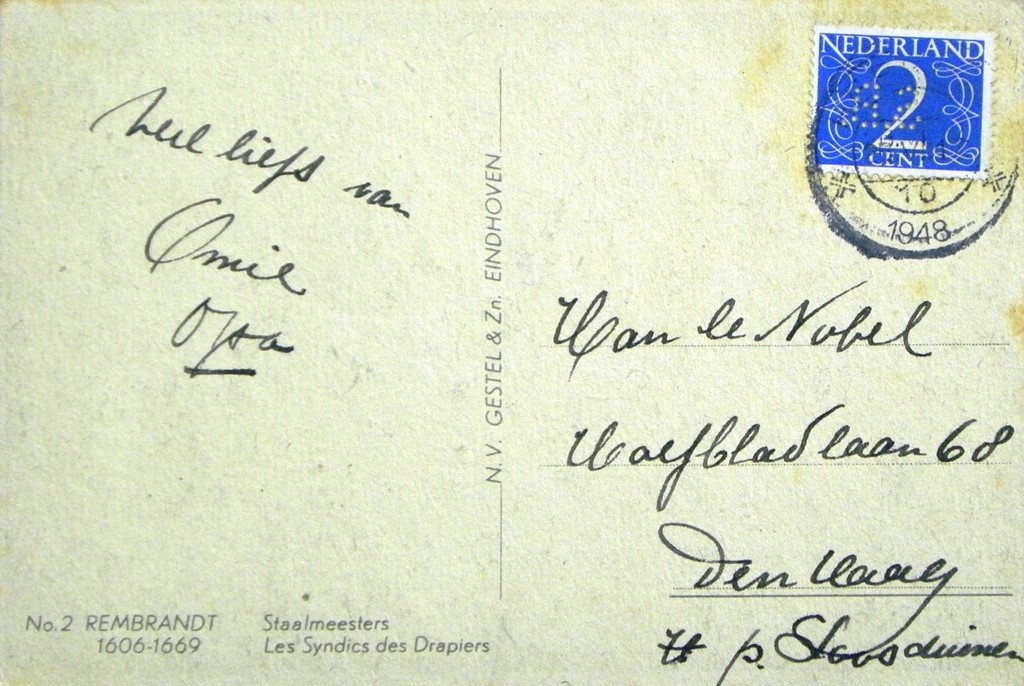 Veel liefs van
Omie
Opa
N.V. GESTEL & Zn. EINDHOVEN
No. 2 REMBRANDT
1606-1669
Staalmeesters
Les Syndics des Drapiers
NEDERLAND
2
CENT
10
1948
Han le Nobel
Hoefbladlaan 68
Den Haag
p. Loosduinen